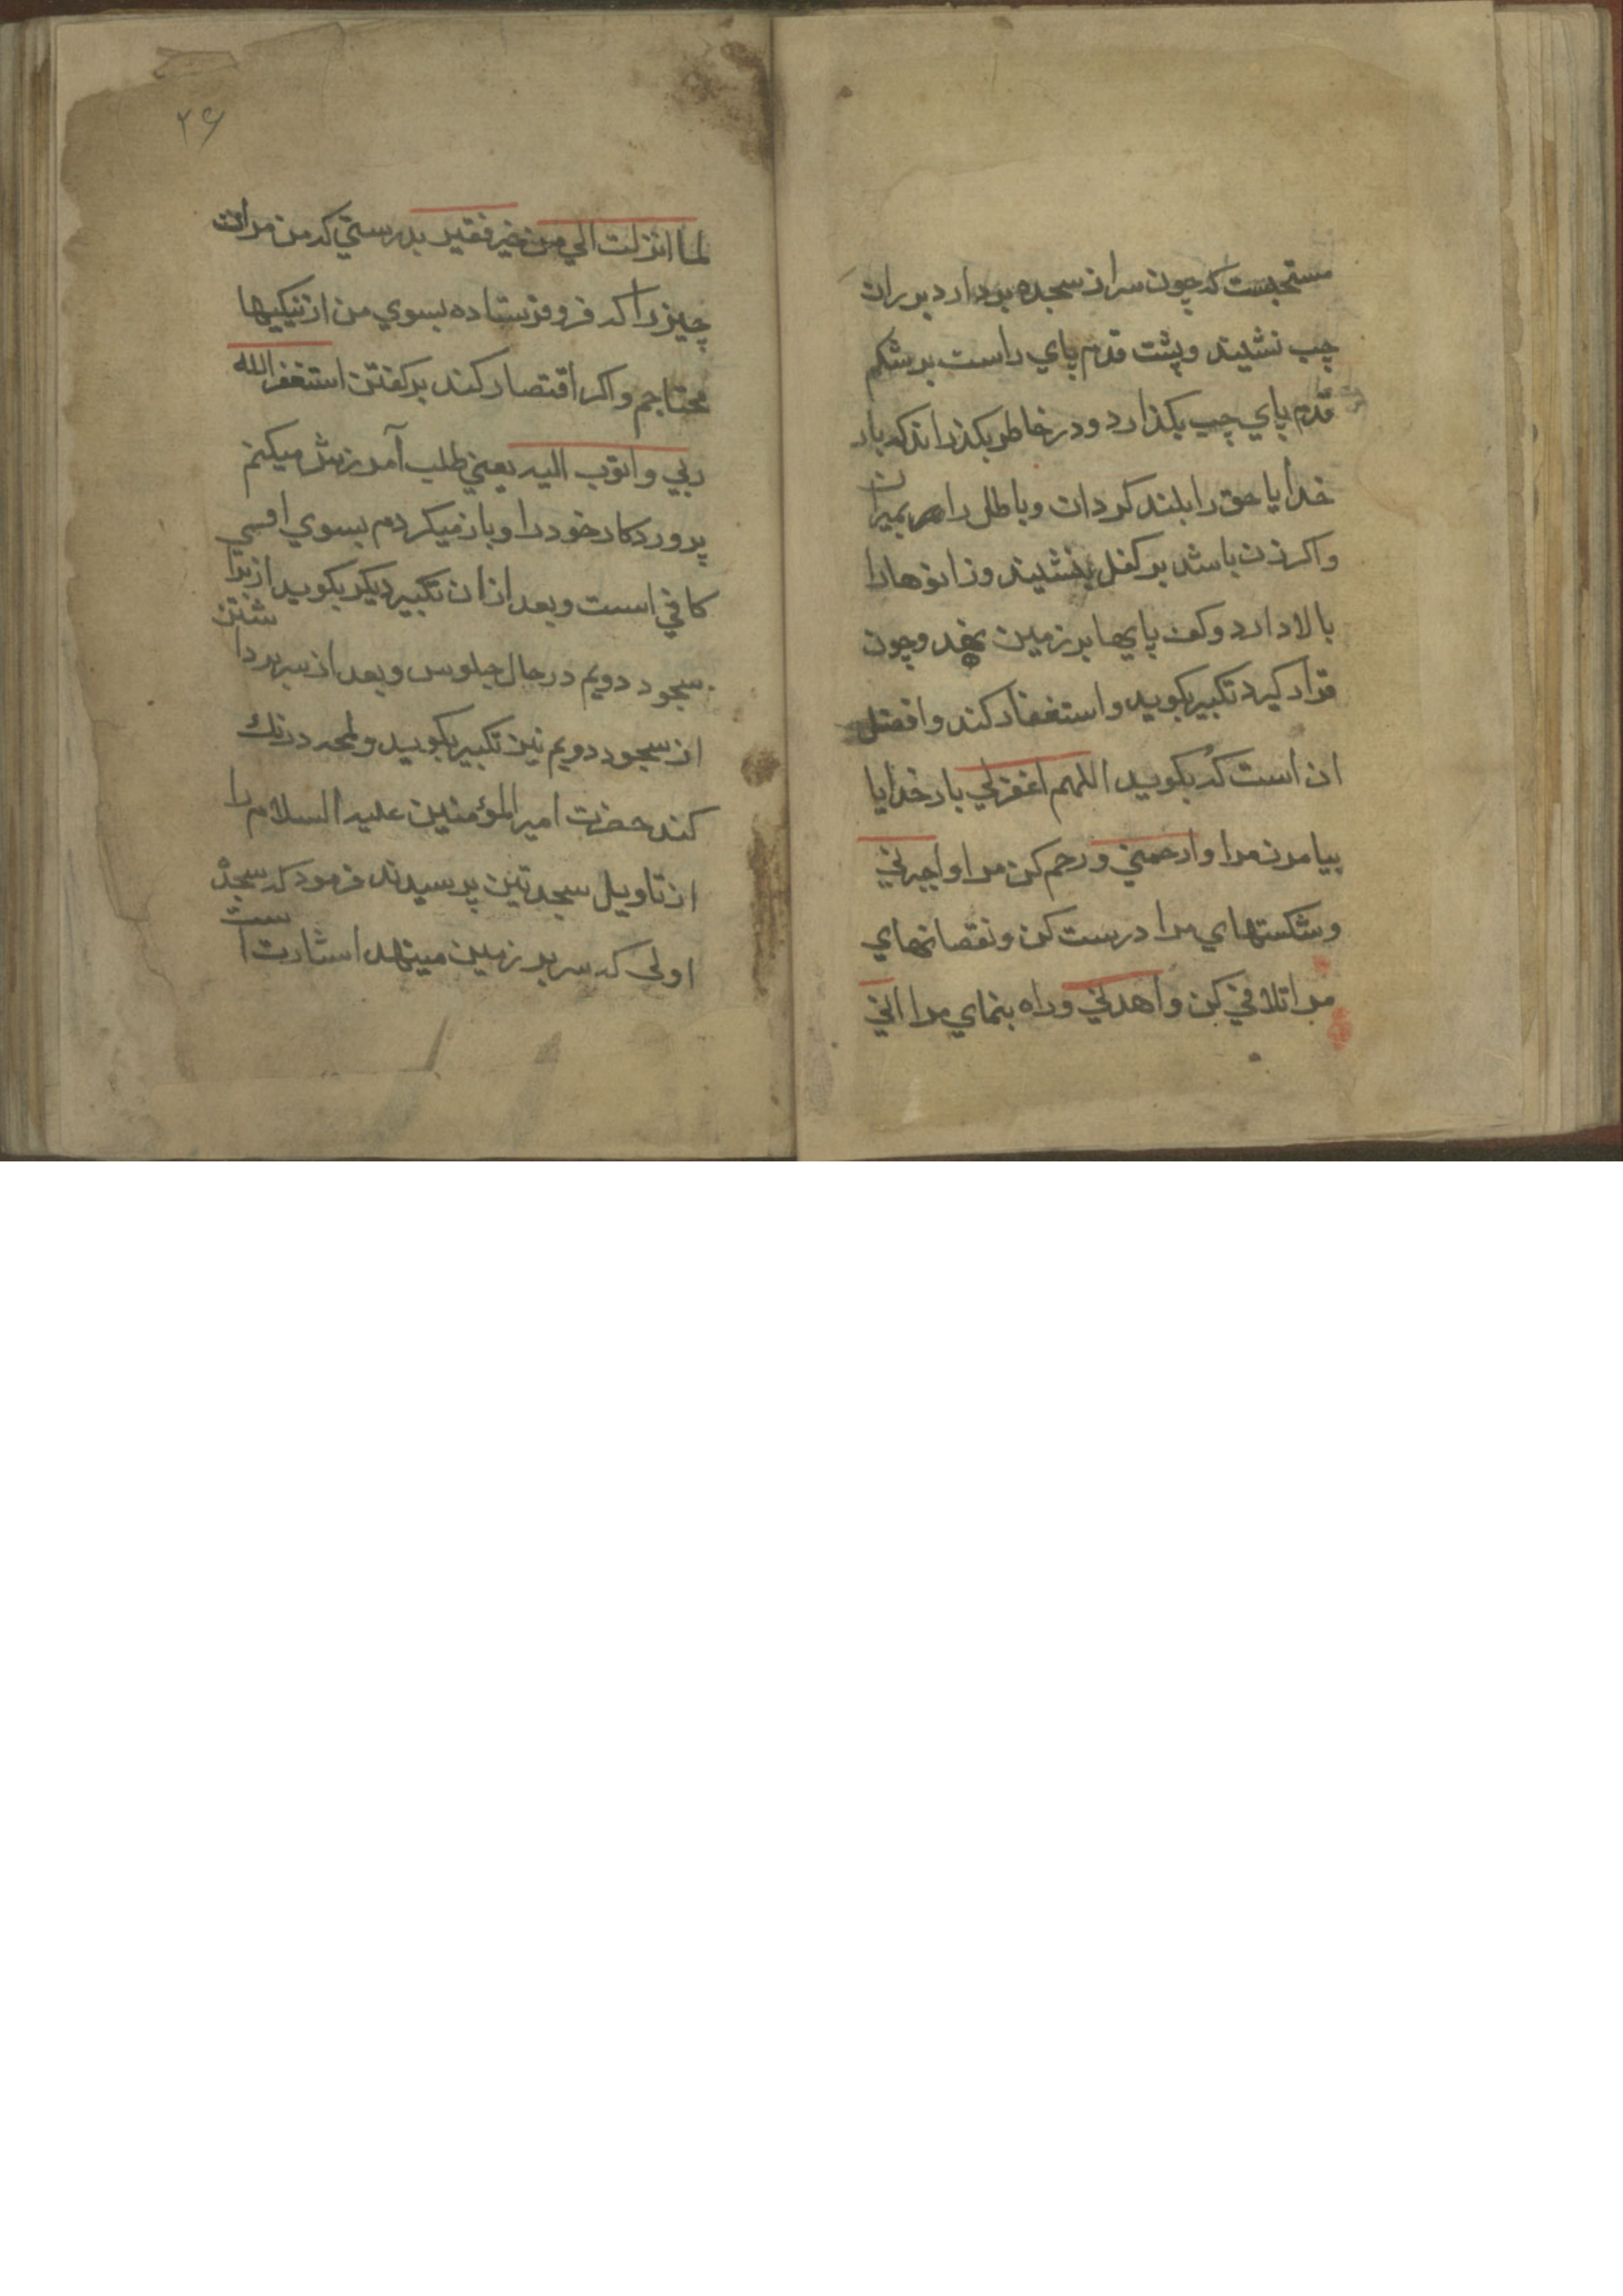 مستحبست که چون سر از سجده بردارد بر ران
چپ نشیند و پشت قدم پاي راست بر شکم
قدم پاي چپ بکذارد و در خاطر بکذراند که بار
خدایا حق را بلند کردان و باطل را بمیران
و اکر زن باشد بر کفل بنشیند و زانوها را
بالا دارد و کف پایها بر زمین نهد و چون
قرار کیرد تکبیر بکوید و استغفار کند و افضل
ان است که بکوید اللهم اغفرلي بار خدایا
بیامرز مرا و ارحمني و رحم کن مرا و اجبرني
و شکستهاي مرا درست کن و نقصانهاي
مرا تلافي کن و اهدني و راه بنماي مرا اني
۲۶
لما انزلت الي من خیر فقیر بدرستي که من مر ان
چیز را که فرو فرستاده بسوي من از نیکیها
محتاجم و اکر اقتصار کند بر کفتن استغفر الله
ربي و اتوب الیه یعني طلب آمرزش میکنم
پروردکار خود را و باز میکردم بسوي او
کافي است و بعد از ان تکبیر دیکر بکوید از برا
سجود دویم در حال جلوس و بعد از سر برداشتن
از سجود دویم نیز تکبیر بکوید و لمحه درنك
کند حضرت امیر المؤمنین علیه السلام را
از تاویل سجدتین پرسیدند فرمود که سجدۀ
اولی که سر بر زمین مینهد اشارت است